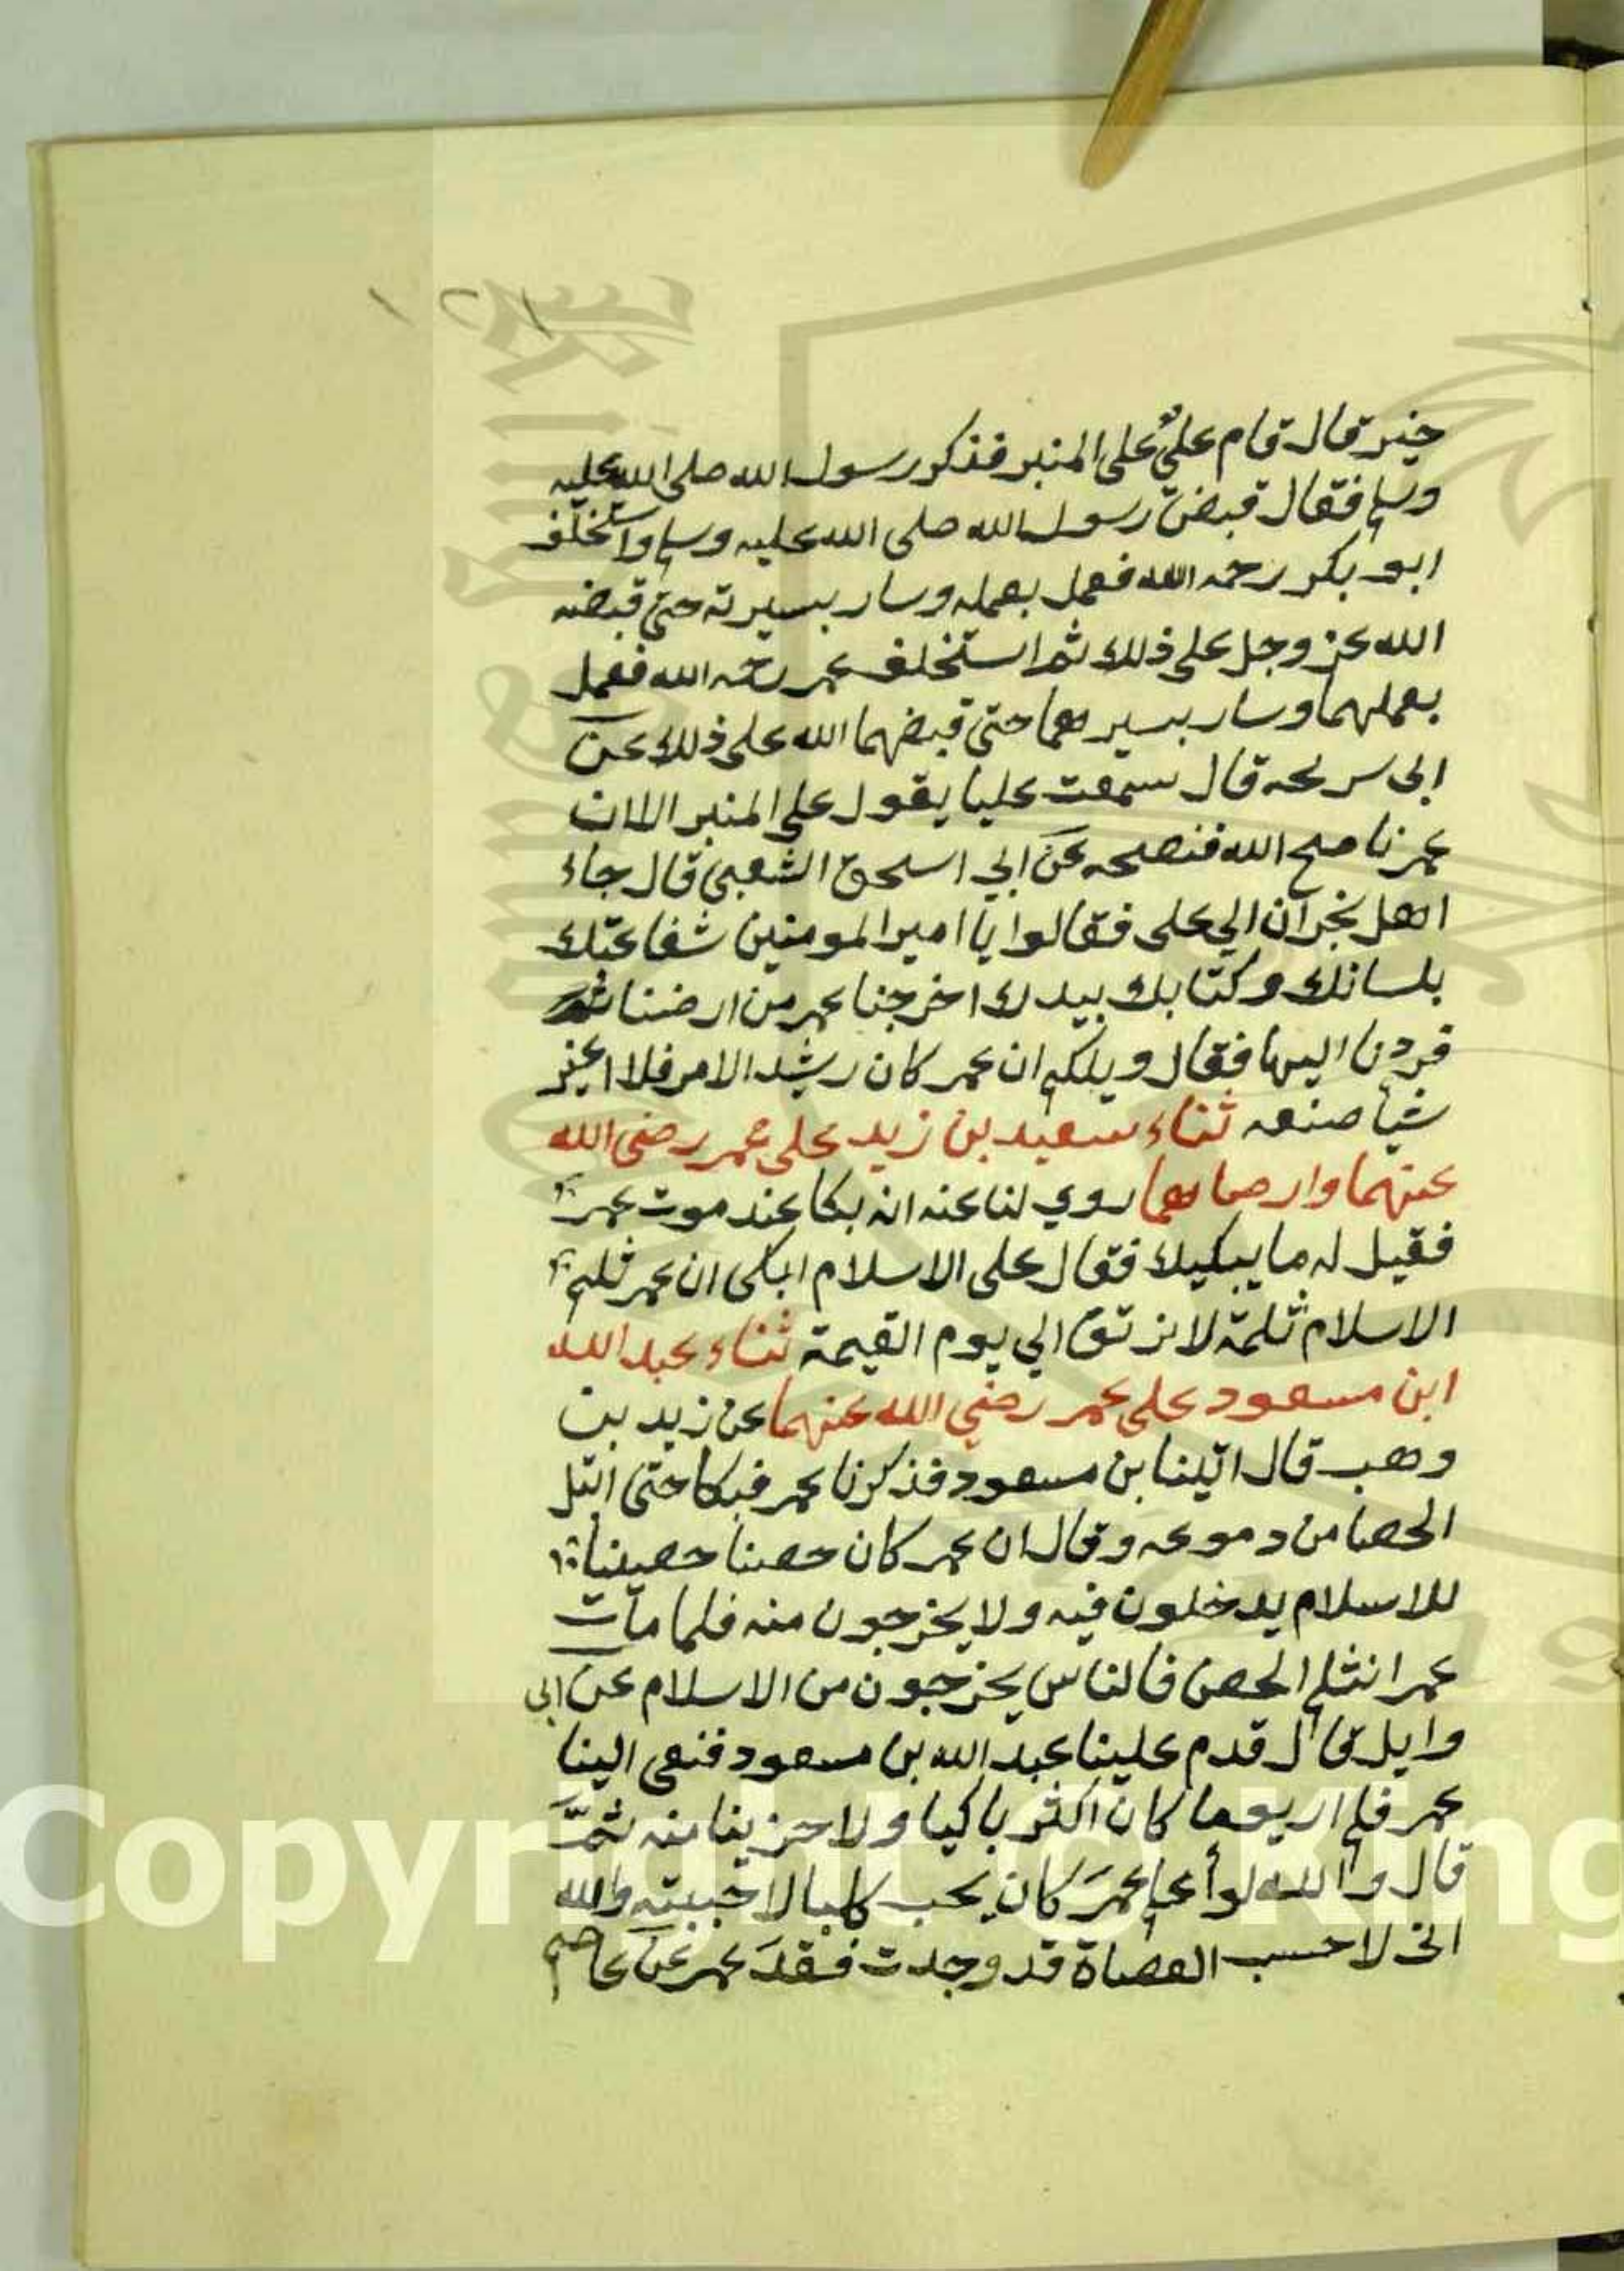 ١٢١
خير قال قام عليٌّ على المنبر فذكر رسول الله صلى الله عليه
وسلم فقال قبض رسول الله صلى الله عليه وسلم واستخلف
ابو بكر رحمه الله فعمل بعمله وسار بسيرته حتى قبضه
الله عز وجل على ذلك ثم استخلف عمر رحمه الله فعمل
بعملهما وسار بسيرهما حتى قبضهما الله على ذلك عن
ابى سريحه قال سمعت عليا يقول على المنبر الا ان
عمر ناصح الله فنصحه عن ابي اسحق الشعبى قال جاء
اهل نجران الي على فقالوا يا امير المومنين شفاعتك
بلسانك وكتابك بيدك اخرجنا عمر من ارضنا
فردنا اليها فقال ويلكم ان عمر كان رشيد الامر فلا اغير
شيا صنعه ثناء سعيد بن زيد على عمر رضى الله
عنهما وارضاهما روي لنا عنه انه بكا عند موت عمر
فقيل له ما يبكيك فقال على الاسلام ابكى ان عمر ثلم
الاسلام ثلمة لا ترتق الي يوم القيمة ثناء عبد الله
ابن مسعود على عمر رضي الله عنهما عن زيد بن
وهب قال اتينا بن مسعود فذكرنا عمر فبكا حتى ابتل
الحصا من دموعه وقال ان عمر كان حصنا حصينا
للاسلام يدخلون فيه ولا يخرجون منه فلما مات
عمر انثلم الحصن فالناس يخرجون من الاسلام عن ابى
وايل قال قدم علينا عبد الله بن مسعود فنعى الينا
عمر فلم ار يوما كان اكثر باكيا ولا حزينا منه ثم
قال والله لو أعلم عمر كان يحب كلبا لاحببته والله
انى لاحسب العضاة قد وجدت فقد عمر عن عاصم
Copyright © King